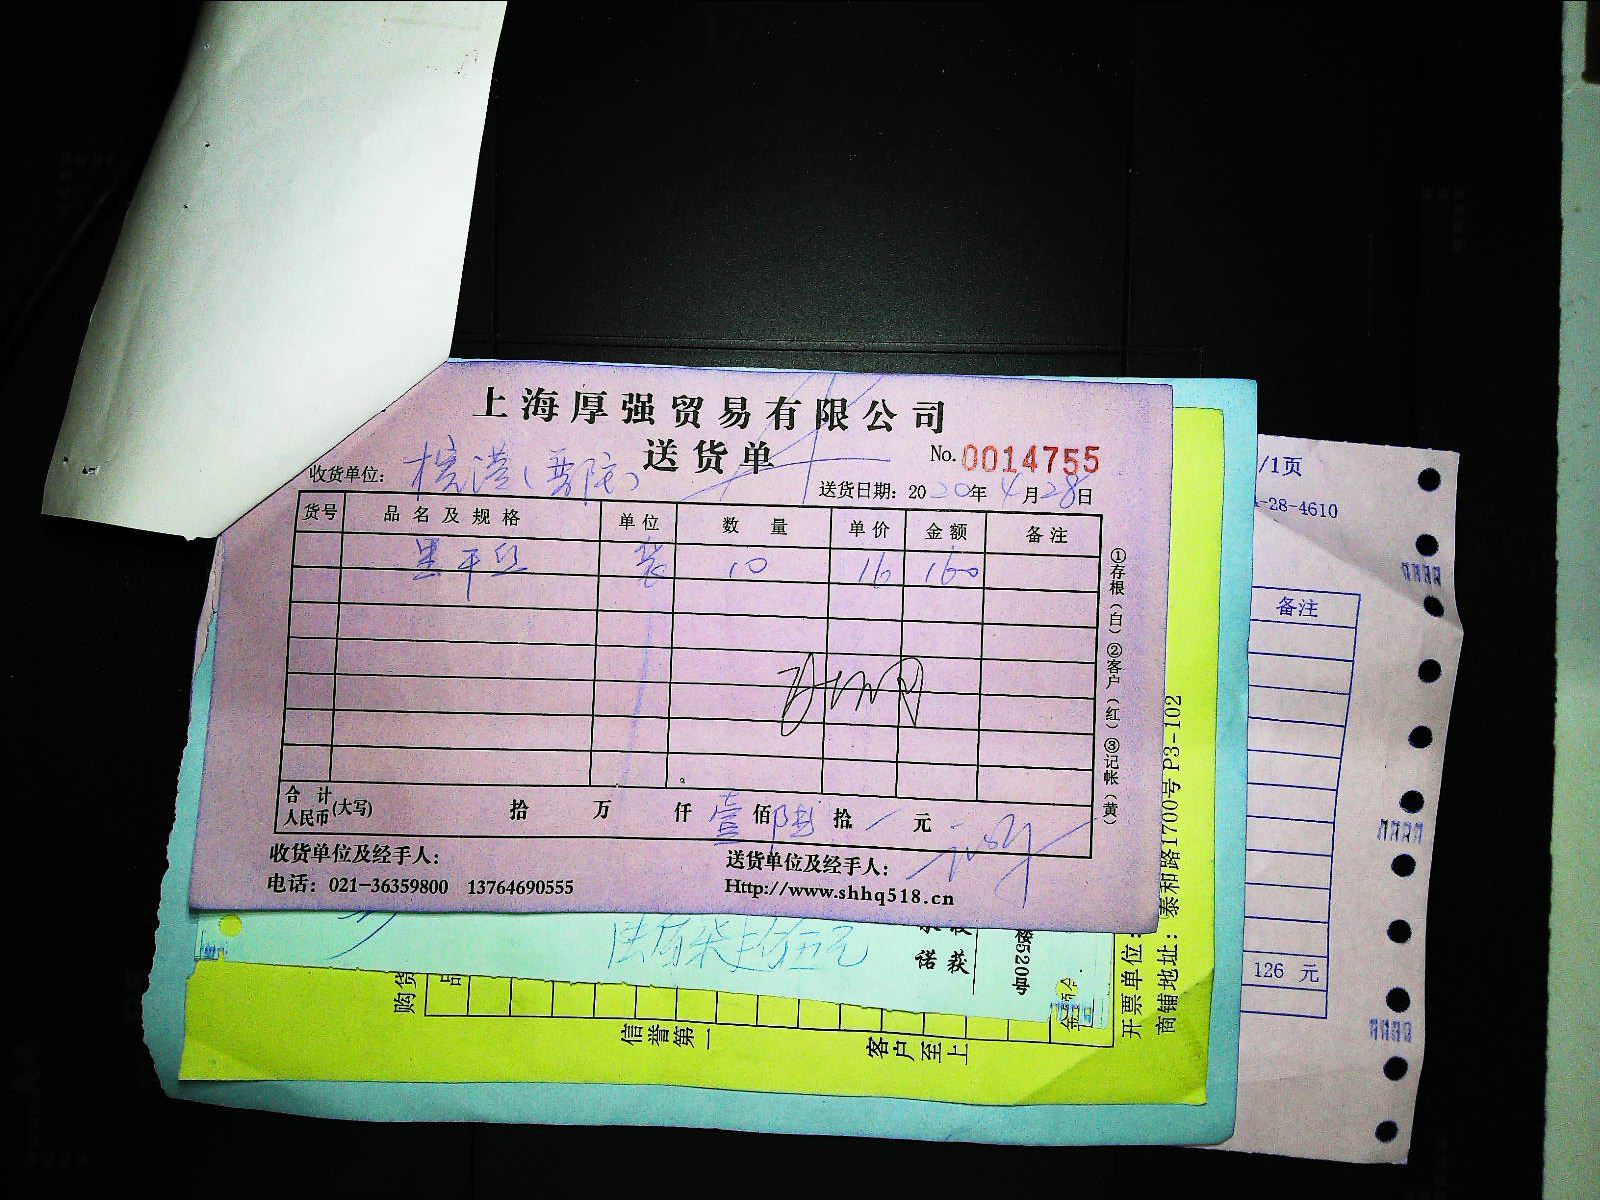 上海厚强贸易有限公司
送货单
No. 0014755
收货单位：
送货日期：2020年4月28日
货号 品名及规格 单位 数量 单价 金额 备注
袋 10 16 160
①存根（白）②客户（红）③记帐（黄）
合计人民币(大写) 拾 万 仟 壹 佰 陆 拾 元
收货单位及经手人：
送货单位及经手人：
电话：021-36359800 13764690555
Http://www.shhq518.cn
/1页
-28-4610
备注
126 元
诺 获
楼520号
购货
品
信誉第一
客户至上
开票单位：
商铺地址：泰和路1700号P3-102